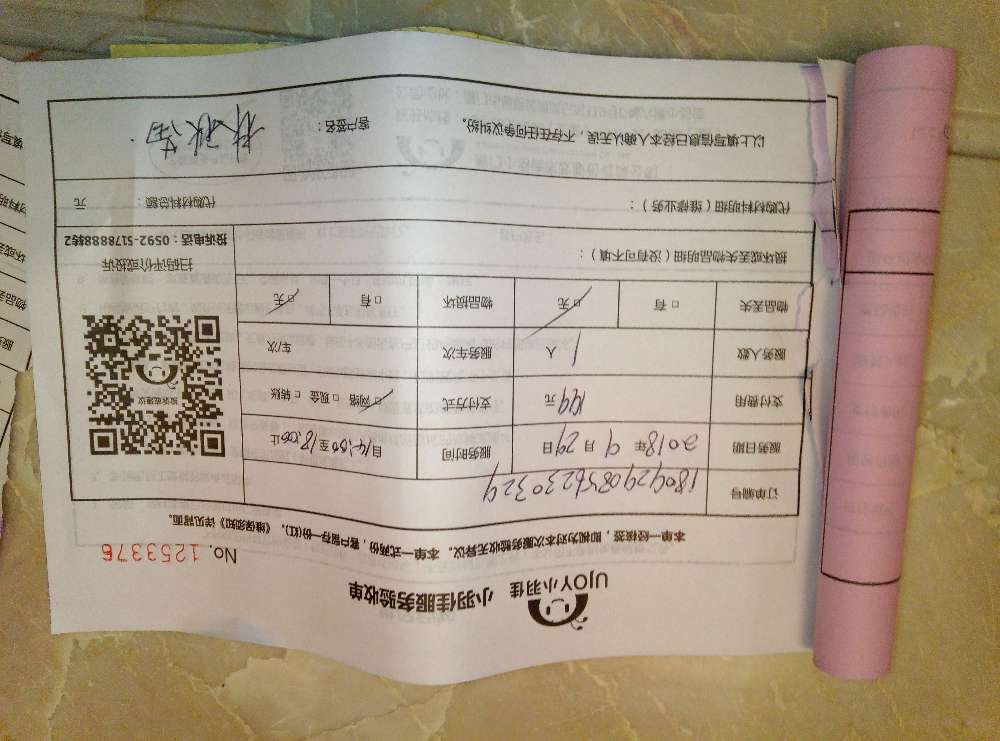 UJOY小羽佳 小羽佳服务验收单
No. 1253376
本单一经核签,即视为对本次服务验收无异议。本单一式两份,客户留存一份(红),《维保须知》详见背面。
订单编号 1809290856230329
服务日期 2018年9月29日 服务时间 自14:00至18:00止
支付费用 149元 支付方式 ☑网络 □现金 □转账
服务人数 1人 服务车次 车/次
物品丢失 □有 ☑无 物品损坏 □有 ☑无
投诉或建议
扫码评价或投诉
投诉电话:0592-5178888转2
损坏或丢失物品明细(没有可不填):
代购材料明细(维修业务): 代购材料总额: 元
以上填写信息已经本人确认无误,不存在任何争议纠纷。 客户签名: